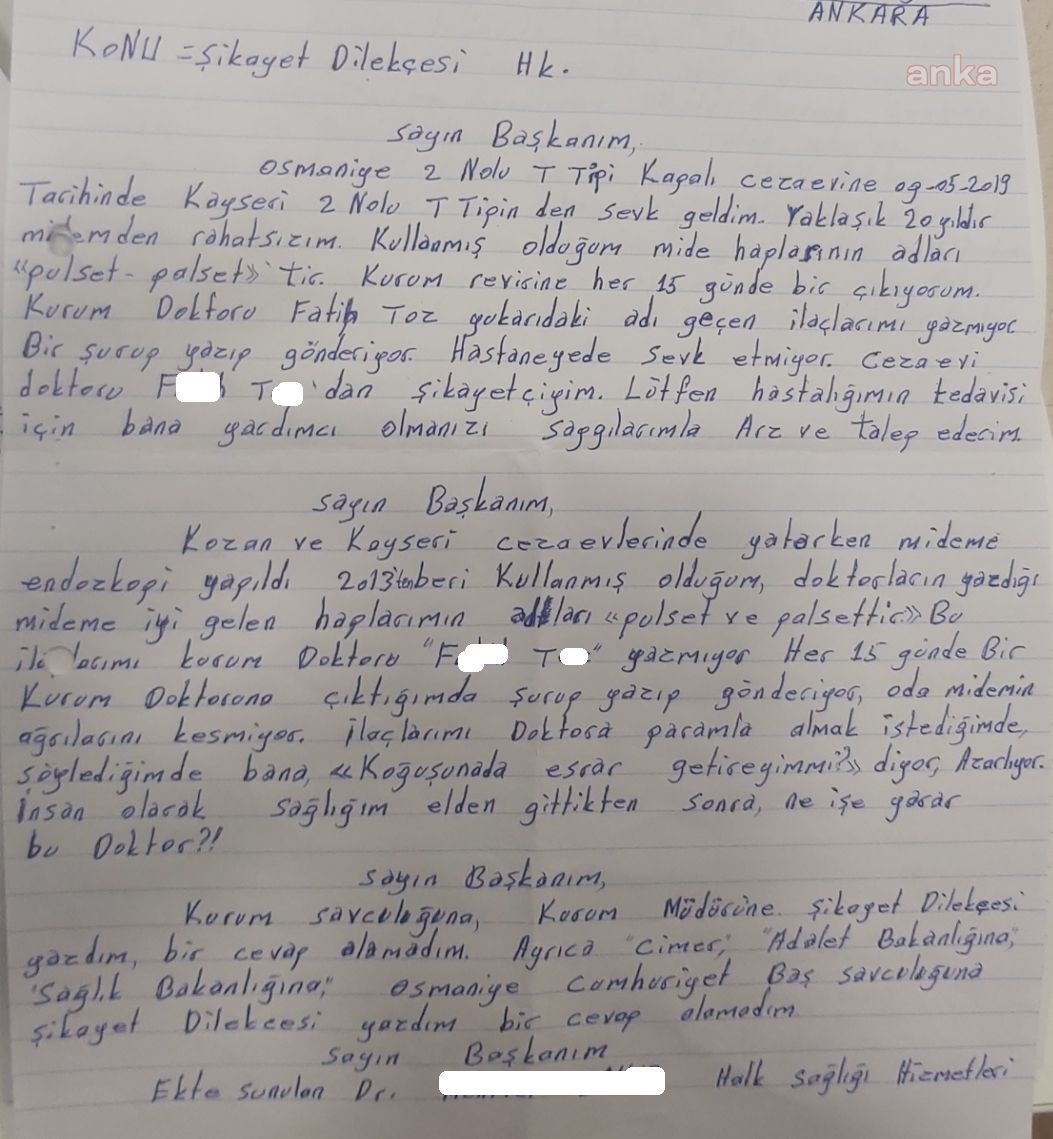 ANKARA
anka
KONU = Şikayet Dilekçesi Hk.
Sayın Başkanım,
Osmaniye 2 Nolu T Tipi Kapalı cezaevine 09-05-2019
Tarihinde Kayseri 2 Nolu T Tipin den Sevk geldim. Yaklaşık 20 yıldır
midemden rahatsızım. Kullanmış olduğum mide haplarının adları
«pulset - palset» tir. Kurum revirine her 15 günde bir çıkıyorum.
Kurum Doktoru Fatih Toz yukarıdaki adı geçen ilaçlarımı yazmıyor
Bir şurup yazıp gönderiyor. Hastaneyede Sevk etmiyor. Cezaevi
doktoru F T 'dan şikayetçiyim. Lütfen hastalığımın tedavisi
için bana yardımcı olmanızı saygılarımla Arz ve talep ederim
Sayın Başkanım,
Kozan ve Kayseri cezaevlerinde yatarken mideme
endozkopi yapıldı 2013'tenberi Kullanmış olduğum, doktorların yazdığı
mideme iyi gelen haplarımın adları «pulset ve palsettir» Bu
ilaçlarımı kurum Doktoru "F T " yazmıyor Her 15 günde Bir
Kurum Doktoruna çıktığımda şurup yazıp gönderiyor, oda midemin
ağrılarını kesmiyor. İlaçlarımı Doktora paramla almak istediğimde,
söylediğimde bana, «Koğuşunada esrar getireyimmi?» diyor, Azarlıyor.
İnsan olarak sağlığım elden gittikten sonra, ne işe yarar
bu Doktor?!
Sayın Başkanım,
Kurum savcılığına, Kurum Müdürüne Şikayet Dilekçesi
yazdım, bir cevap alamadım. Ayrıca "Cimer," "Adalet Bakanlığına,"
"Sağlık Bakanlığına," Osmaniye Cumhuriyet Baş savcılığına
şikayet Dilekçesi yazdım bir cevap alamadım
Sayın Başkanım
Ekte sunulan Dr. Halk Sağlığı Hizmetleri